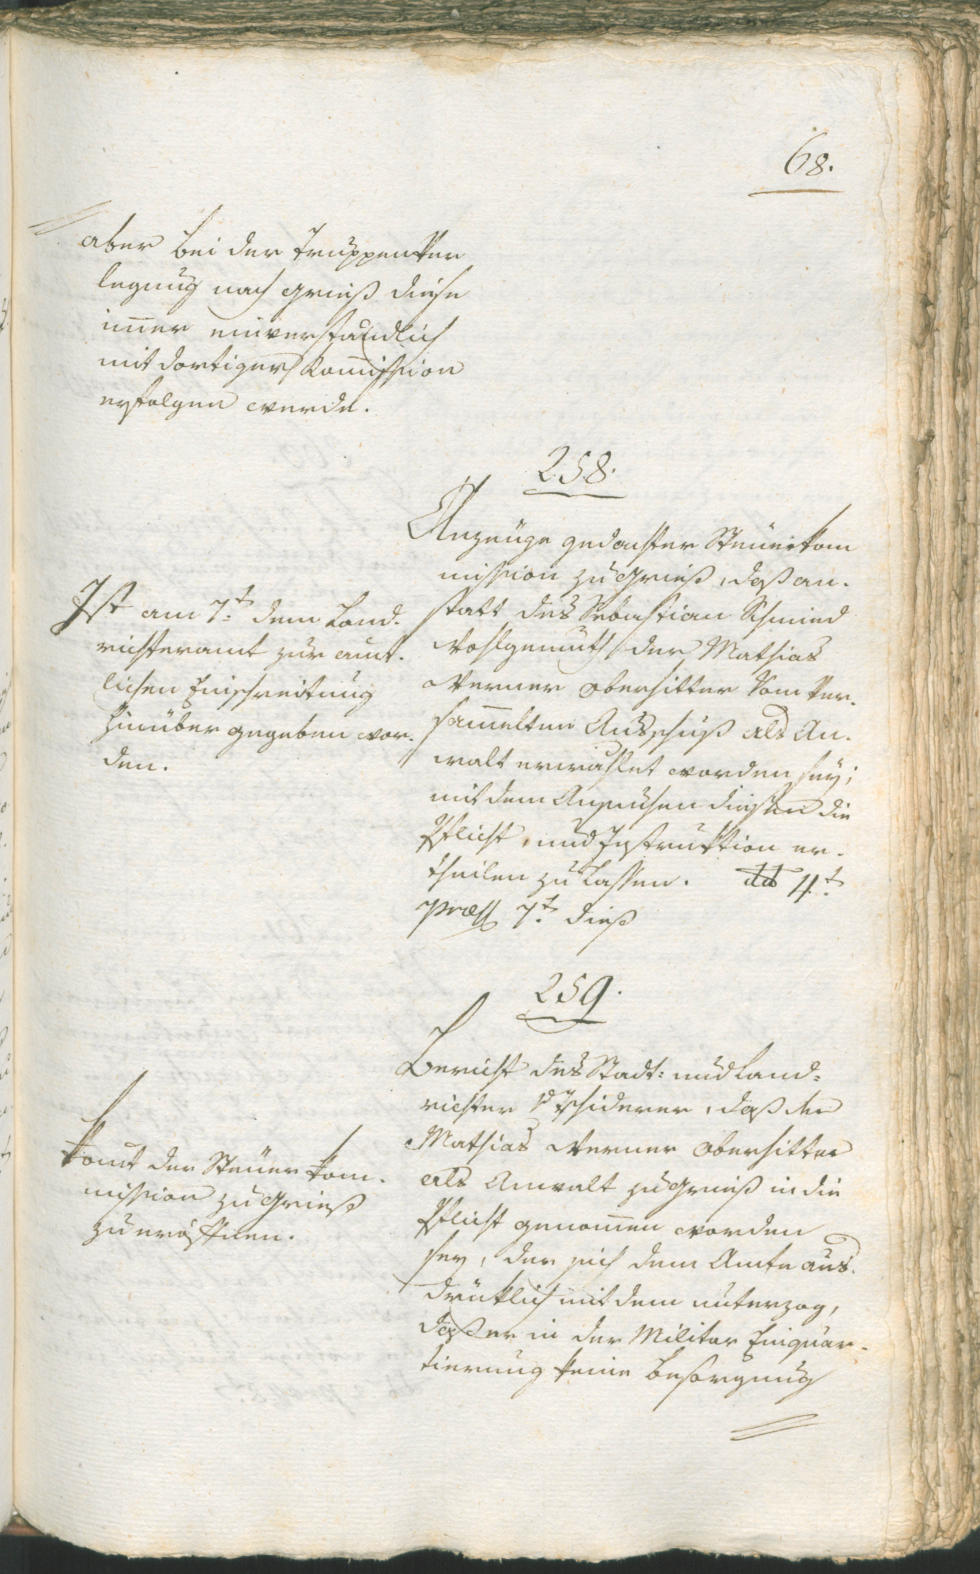 68.
aber bei der Truppenver
legung nach Grieß diese
im̄er einverstaͤndlich
mit dortiger Kom̄ission
erfolgen werde.
258.
Anzeige gedachter Steuerkom
mission zu Grieß, daß an-
statt des Sebastian Schmied
Wohlgemuth der Mathias
Werner Obersitter vom ver-
sam̄elten Ausschuß als An-
walt erwaͤhlet worden sey;
mit dem Ansuchen diesen die
Pflicht, und Instruktion er-
theilen zu lassen. dd 4.t
Praes 7.t dieß
Ist am 7.t dem Land-
richteramt zur amt-
lichen Einschreitung
hinuͤber gegeben wor-
den.
259.
Bericht des Stadt- und Land-
richter v Tschiderer, daß der
Mathias Werner Obersitter
als Anwalt zu Grieß in die
Pflicht genom̄en worden
sey, der sich dem Amte aus-
druͤklich mit dem unterzog,
daß er in der Militar Einquar-
tierung keine Besorgung
Kom̄t der Steuer Kom-
mission zu Grieß
zu eroͤffnen.